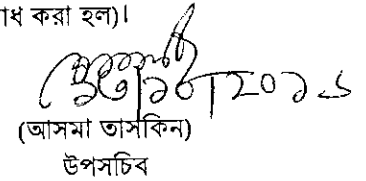 ধ করা হল)।
(আসমা তাসকিন)
উপসচিব